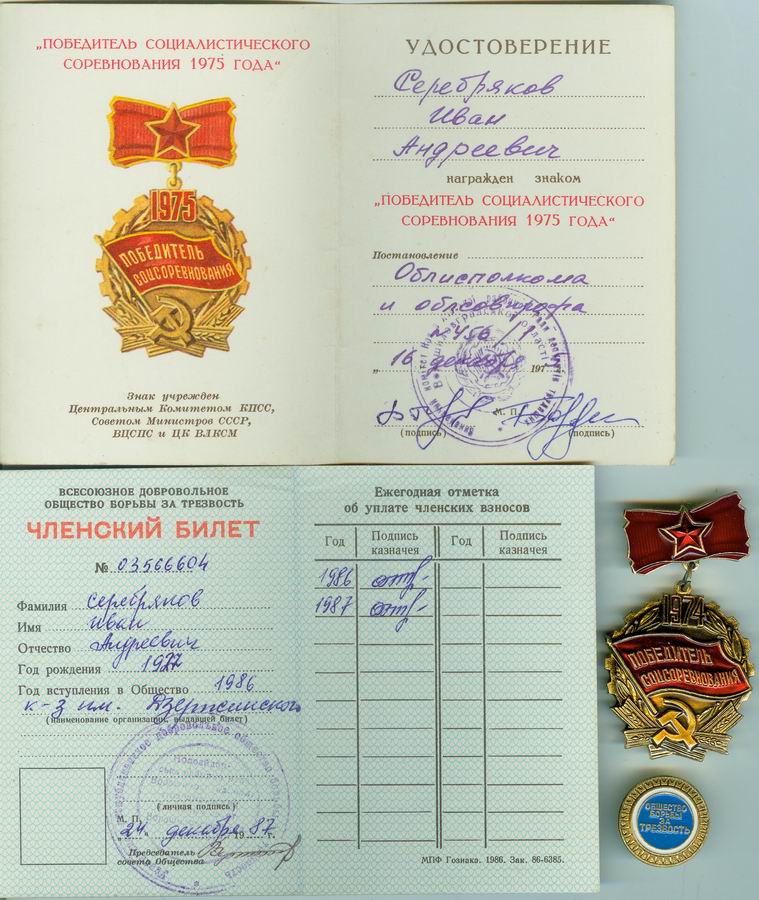 „ПОБЕДИТЕЛЬ СОЦИАЛИСТИЧЕСКОГО
СОРЕВНОВАНИЯ 1975 ГОДА“
1975
ПОБЕДИТЕЛЬ
СОЦСОРЕВНОВАНИЯ
Знак учрежден
Центральным Комитетом КПСС,
Советом Министров СССР,
ВЦСПС и ЦК ВЛКСМ
УДОСТОВЕРЕНИЕ
Серебряков
Иван
Андреевич
награжден знаком
„ПОБЕДИТЕЛЬ СОЦИАЛИСТИЧЕСКОГО
СОРЕВНОВАНИЯ 1975 ГОДА“
Постановление
Облисполкома
и облсовпрофа
№ 456/
„16 декабря 197
М. П.
(подпись) (подпись)
ВСЕСОЮЗНОЕ ДОБРОВОЛЬНОЕ
ОБЩЕСТВО БОРЬБЫ ЗА ТРЕЗВОСТЬ
ЧЛЕНСКИЙ БИЛЕТ
№ 03566604
Фамилия Серебряков
Имя Иван
Отчество Андреевич
Год рождения
Год вступления в Общество 1986
к-з им. Дзержинского
(наименование организации, выдавшей билет)
(личная подпись)
М. П.
„24“ декабря 1987 г.
Председатель
совета Общества
Ежегодная отметка
об уплате членских взносов
Год Подпись казначея Год Подпись казначея
1986
1987
МПФ Гознака. 1986. Зак. 86-6385.
1974
ПОБЕДИТЕЛЬ
СОЦСОРЕВНОВАНИЯ
ОБЩЕСТВО
БОРЬБЫ
ЗА
ТРЕЗВОСТЬ